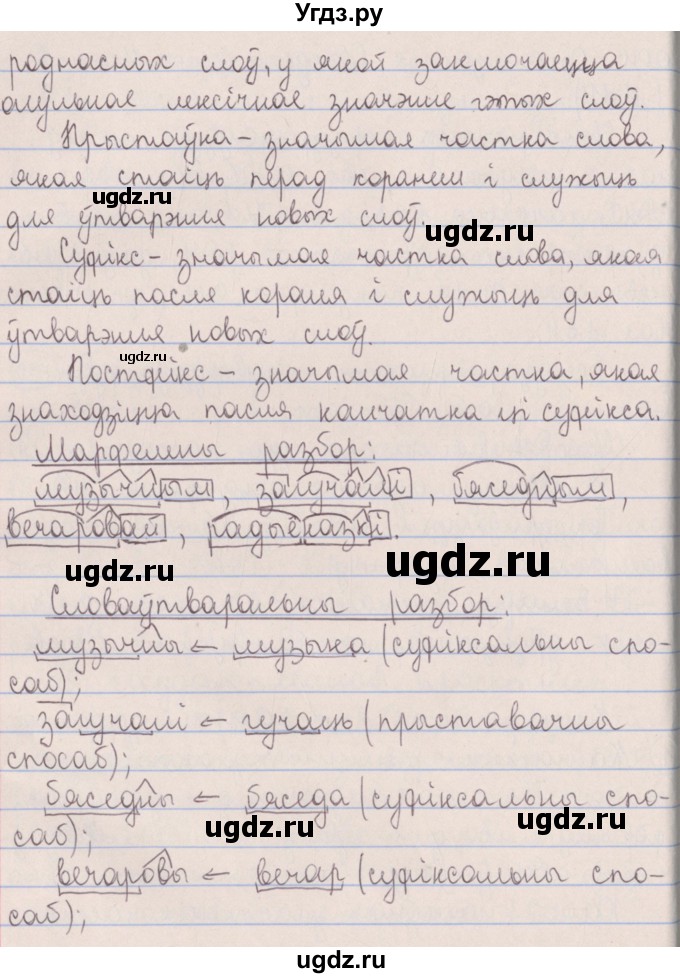 Угдз.ру
роднасных слоў, у якой заключаецца
агульнае лексічнае значэнне гэтых слоў.
Прыстаўка – значымая частка слова,
якая стаіць перад коранем і служыць
ugdz.ru
для ўтварэння новых слоў.
ugdz.ru
Суфікс – значымая частка слова, якая
стаіць пасля кораня і служыць для
ўтварэння новых слоў.
ugdz.ru
Постфікс – значымая частка, якая
знаходзіцца пасля канчатка ці суфікса.
Марфемны разбор:
музычным, загучалі, бяседным,
вечаровай, радыёказкі.
ugdz.ru
ugdz.ru
Словаўтваральны разбор:
музычны ← музыка (суфіксальны спо-
саб);
ugdz.ru
ugdz.ru
загучалі ← гучаць (прыставачны
спосаб);
бяседны ← бяседа (суфіксальны спо-
саб);
ugdz.ru
ugdz.ru
вечаровы ← вечар (суфіксальны спо-
саб);
ugdz.ru
ugdz.ru